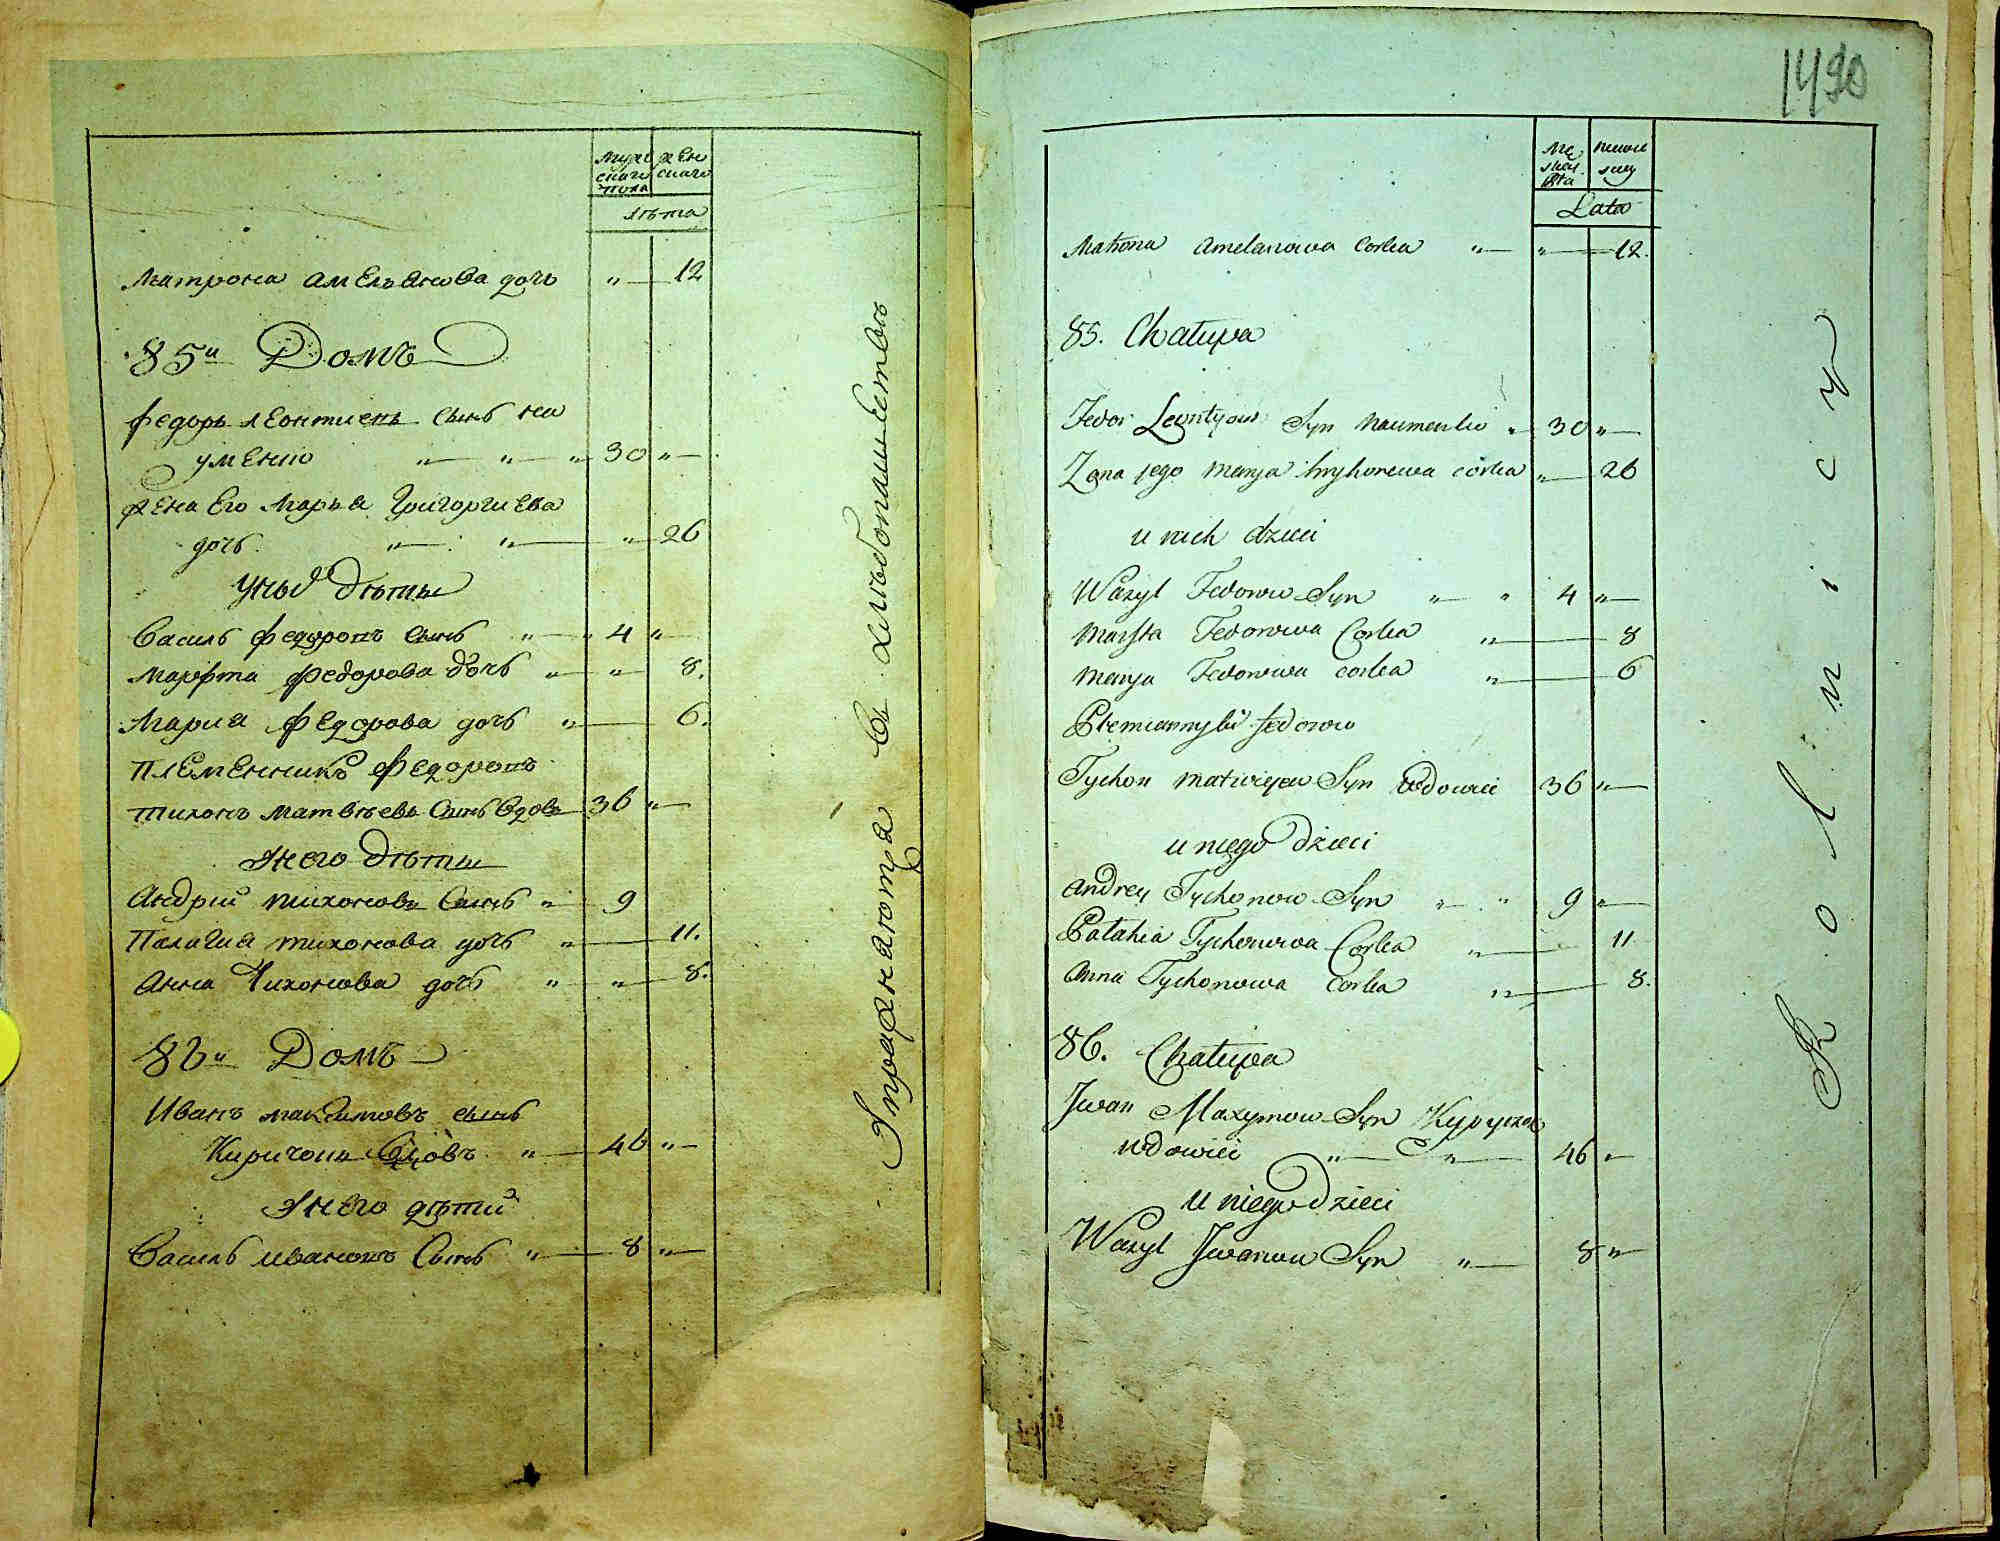 мужескаго пола
женскаго
лѣта
Матрона Амельянова дочь " 12
85й Домъ
Федоръ Леонтиевъ сынъ На
уменко " " " 30 "
Жена Его Марья Григоргиева
дочь " " " 26
У ных Дѣты
Василь Федоровъ сынъ " " 4 "
Марфта Федорова дочь " " 8.
Мария Федорова дочь " 6.
Племенникъ Федоровъ
Тихонъ Матвѣевъ Сынъ Вдовъ 36 "
У него Дѣты
Андрий Тихоновъ Сынъ " 9
Палагия Тихонова дочь " 11.
Анна Тихонова дочь " " 8.
86й Домъ
Иванъ Максимовъ сынъ
Киричокъ Вдовъ " 46 "
У него дѣти
Василь Ивановъ Сынъ " 8 "
Упражняютця въ хлѣбопашествѣ
1490
męskaj płta
Lata
Matrona Amelanowa Corka " " 12.
85. Chatupa
Fedor Leontyow Syn Naumenko " 30 "
Zona jego Marya hryhorewa córka " 26
u nich dzieci
Wazyl Fedorow Syn " " 4 "
Marfta Fedorowa Corka " 8
Marya Fedorowa corka " 6
Plemiannyk Fedorow
Tychon Matwiyew Syn wdowiec 36 "
u niego Dzieci
Andrey Tychonow Syn " " 9 "
Palahia Tychonowa Corka " 11
Anna Tychonowa Corka " 8.
86. Chatupa
Jwan Maxymow Syn Kyryczok
wdowiec " " 46 "
u niego Dzieci
Wazyl Jwanow Syn " 8 "
Rolnicy